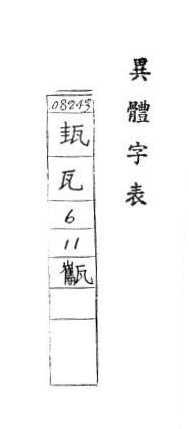 異體字表
08243
瓦
6
11